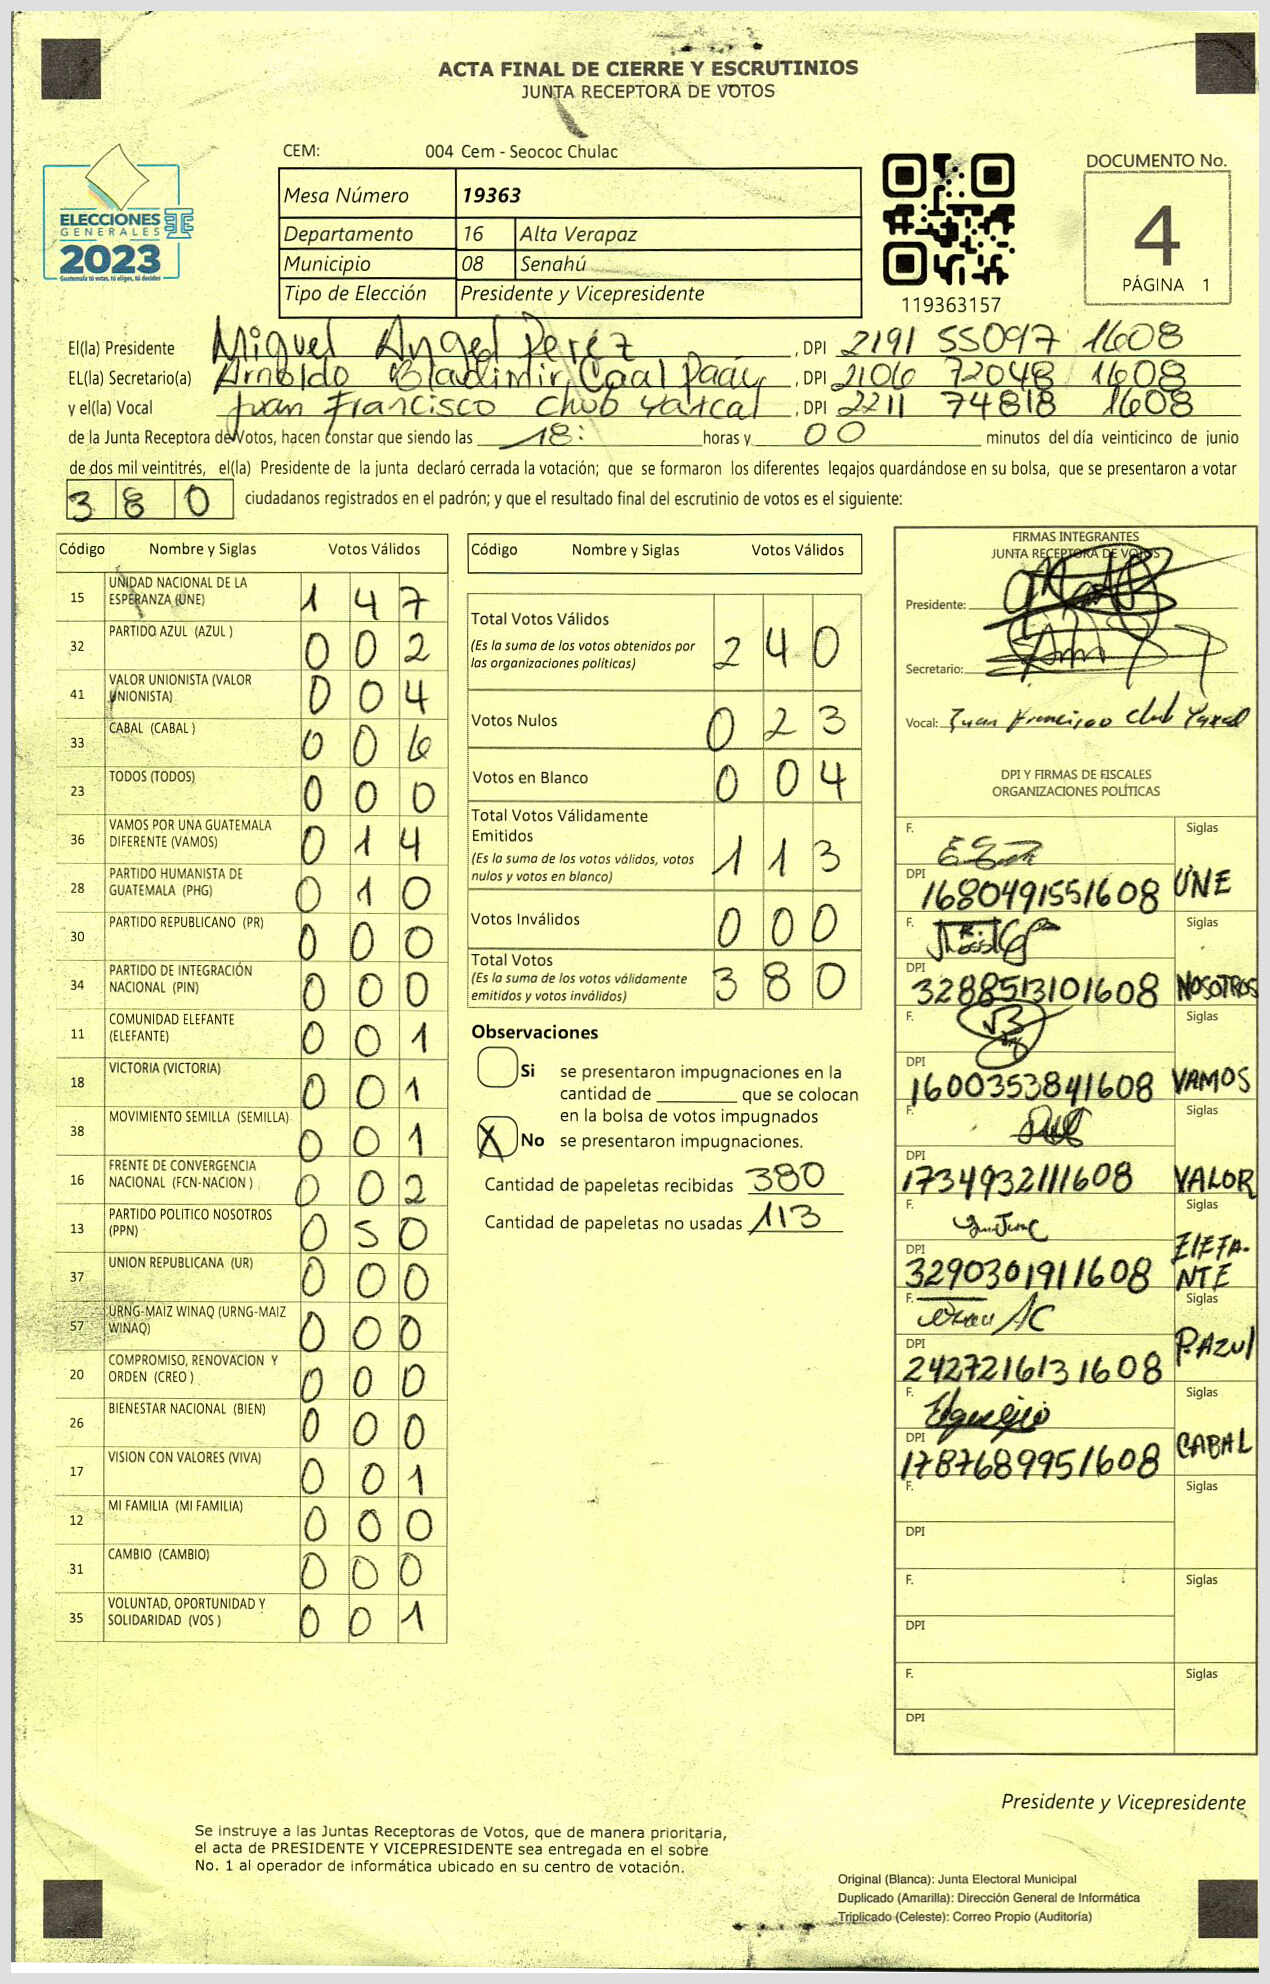 ACTA FINAL DE CIERRE Y ESCRUTINIOS
JUNTA RECEPTORA DE VOTOS
CEM: 004 Cem - Seococ Chulac
Mesa Número 19363
Departamento 16 Alta Verapaz
Municipio 08 Senahú
Tipo de Elección Presidente y Vicepresidente
ELECCIONES
GENERALES
2023
Guatemala tú votas, tú eliges, tú decides
119363157
DOCUMENTO No.
4
PÁGINA 1
El(la) Presidente Miguel Angel Perez , DPI 2191 55097 1608
EL(la) Secretario(a) Arnoldo Bladimir Caal Paay , DPI 2106 72048 1608
y el(la) Vocal Juan Francisco Chub Yaxcal , DPI 2211 74818 1608
de la Junta Receptora de Votos, hacen constar que siendo las 18: horas y 00 minutos del día veinticinco de junio
de dos mil veintitrés, el(la) Presidente de la junta declaró cerrada la votación; que se formaron los diferentes legajos quardándose en su bolsa, que se presentaron a votar
380 ciudadanos registrados en el padrón; y que el resultado final del escrutinio de votos es el siguiente:
Código Nombre y Siglas Votos Válidos
15 UNIDAD NACIONAL DE LA ESPERANZA (UNE) 1 4 7
32 PARTIDO AZUL (AZUL ) 0 0 2
41 VALOR UNIONISTA (VALOR UNIONISTA) 0 0 4
33 CABAL (CABAL ) 0 0 6
23 TODOS (TODOS) 0 0 0
36 VAMOS POR UNA GUATEMALA DIFERENTE (VAMOS) 0 1 4
28 PARTIDO HUMANISTA DE GUATEMALA (PHG) 0 1 0
30 PARTIDO REPUBLICANO (PR) 0 0 0
34 PARTIDO DE INTEGRACIÓN NACIONAL (PIN) 0 0 0
11 COMUNIDAD ELEFANTE (ELEFANTE) 0 0 1
18 VICTORIA (VICTORIA) 0 0 1
38 MOVIMIENTO SEMILLA (SEMILLA) 0 0 1
16 FRENTE DE CONVERGENCIA NACIONAL (FCN-NACION ) 0 0 2
13 PARTIDO POLITICO NOSOTROS (PPN) 0 5 0
37 UNION REPUBLICANA (UR) 0 0 0
57 URNG-MAIZ WINAQ (URNG-MAIZ WINAQ) 0 0 0
20 COMPROMISO, RENOVACION Y ORDEN (CREO ) 0 0 0
26 BIENESTAR NACIONAL (BIEN) 0 0 0
17 VISION CON VALORES (VIVA) 0 0 1
12 MI FAMILIA (MI FAMILIA) 0 0 0
31 CAMBIO (CAMBIO) 0 0 0
35 VOLUNTAD, OPORTUNIDAD Y SOLIDARIDAD (VOS ) 0 0 1
Código Nombre y Siglas Votos Válidos
Total Votos Válidos 2 4 0
(Es la suma de los votos obtenidos por
las organizaciones politicas)
Votos Nulos 0 2 3
Votos en Blanco 0 0 4
Total Votos Válidamente
Emitidos
(Es la suma de los votos válidos, votos
nulos y votos en blanco) 1 1 3
Votos Inválidos 0 0 0
Total Votos
(Es la suma de los votos válidamente
emitidos y votos inválidos) 3 8 0
Observaciones
Si se presentaron impugnaciones en la
cantidad de ________ que se colocan
en la bolsa de votos impugnados
X No se presentaron impugnaciones.
Cantidad de papeletas recibidas 380
Cantidad de papeletas no usadas 113
FIRMAS INTEGRANTES
JUNTA RECEPTORA DE VOTOS
Presidente:
Secretario:
Vocal: Juan Francisco Chub Yaxcal
DPI Y FIRMAS DE FISCALES
ORGANIZACIONES POLÍTICAS
F. Siglas
DPI 1680491551608 UNE
F. Siglas
DPI 3288513101608 NOSOTROS
F. Siglas
DPI 1600353841608 VAMOS
F. Siglas
DPI 1734932111608 VALOR
F. Siglas
DPI 3290301911608 ElEFA-
NTE
F. Siglas
DPI 2427216131608 P.AZUl
F. Siglas
DPI 1787689951608 CABAL
F. Siglas
DPI
F. Siglas
DPI
F. Siglas
DPI
Presidente y Vicepresidente
Se instruye a las Juntas Receptoras de Votos, que de manera prioritaria,
el acta de PRESIDENTE Y VICEPRESIDENTE sea entregada en el sobre
No. 1 al operador de informática ubicado en su centro de votación.
Original (Blanca): Junta Electoral Municipal
Duplicado (Amarilla): Dirección General de Informática
Triplicado (Celeste): Correo Propio (Auditoría)